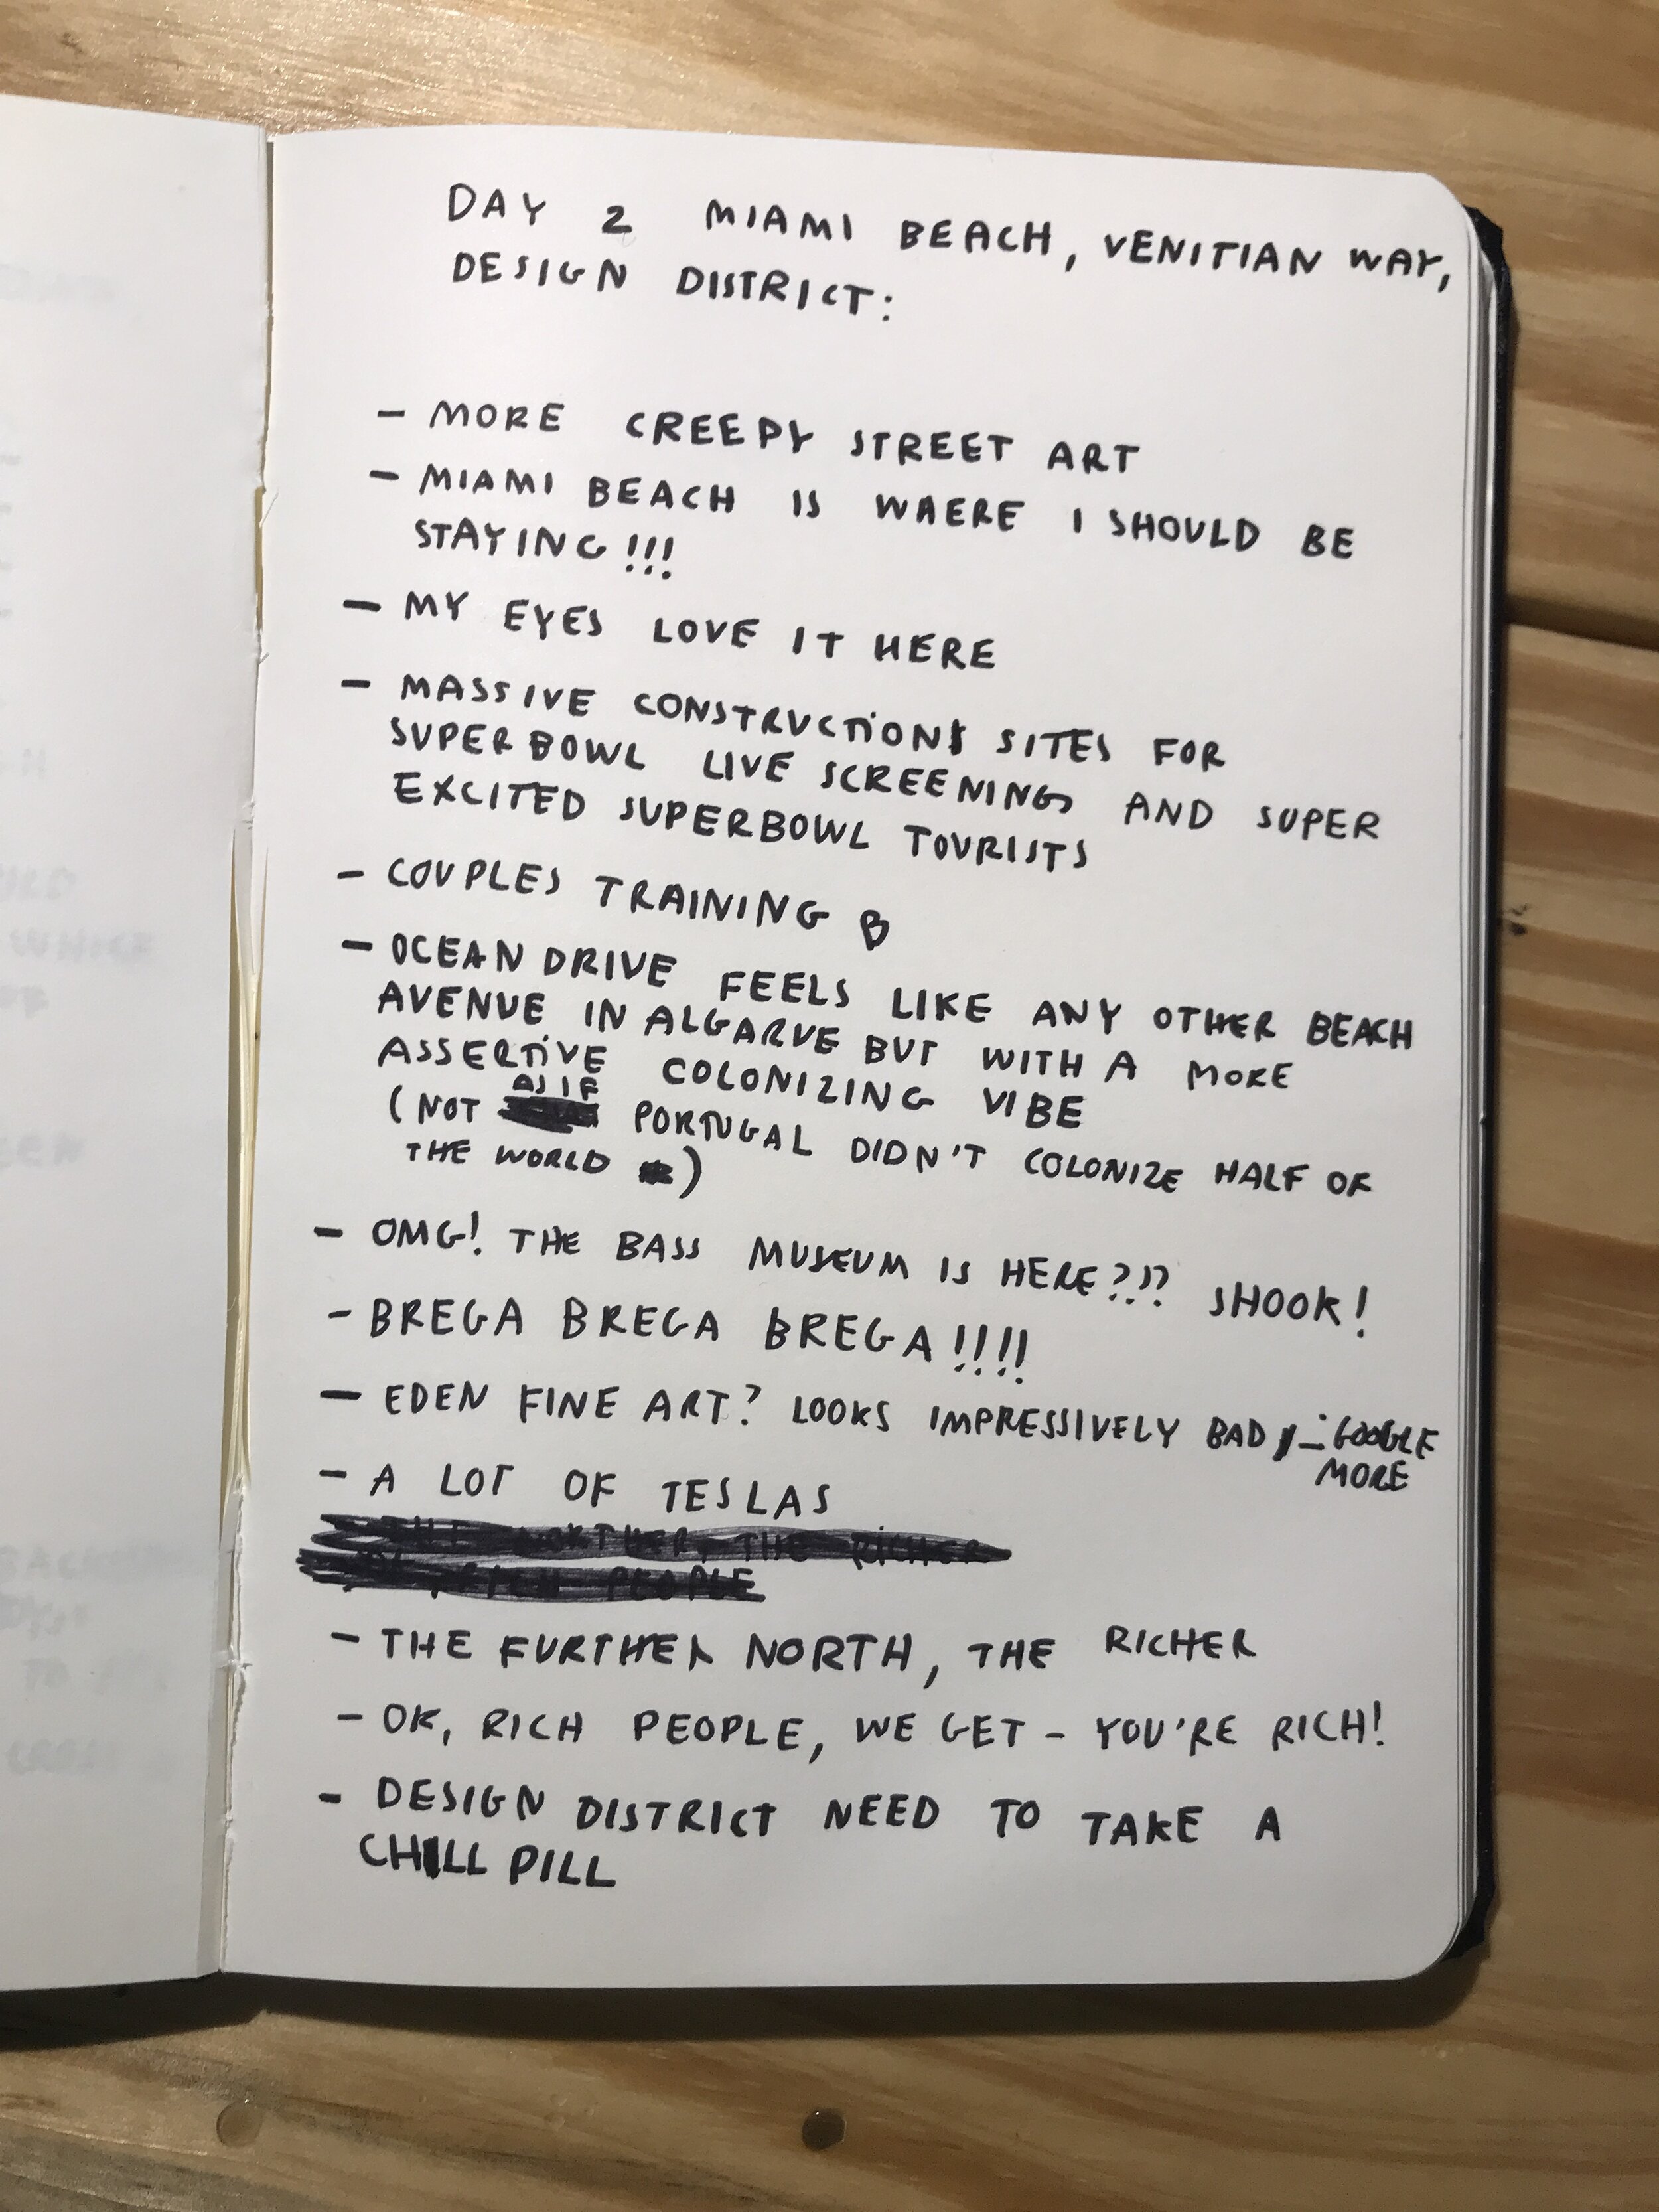 DAY 2 MIAMI BEACH, VENITIAN WAY,
DESIGN DISTRICT:
- MORE CREEPY STREET ART
- MIAMI BEACH IS WHERE I SHOULD BE
STAYING!!!
- MY EYES LOVE IT HERE
- MASSIVE CONSTRUCTIONS SITES FOR
SUPERBOWL LIVE SCREENINGS AND SUPER
EXCITED SUPERBOWL TOURISTS
- COUPLES TRAINING B
- OCEAN DRIVE FEELS LIKE ANY OTHER BEACH
AVENUE IN ALGARVE BUT WITH A MORE
ASSERTIVE COLONIZING VIBE
(NOT AS IF PORTUGAL DIDN'T COLONIZE HALF OF
THE WORLD)
- OMG! THE BASS MUSEUM IS HERE?!? SHOOK!
- BREGA BREGA BREGA!!!!
- EDEN FINE ART? LOOKS IMPRESSIVELY BAD - GOOGLE
MORE
- A LOT OF TESLAS
THE RICHER
PEOPLE
- THE FURTHER NORTH, THE RICHER
- OK, RICH PEOPLE, WE GET - YOU'RE RICH!
- DESIGN DISTRICT NEED TO TAKE A
CHILL PILL